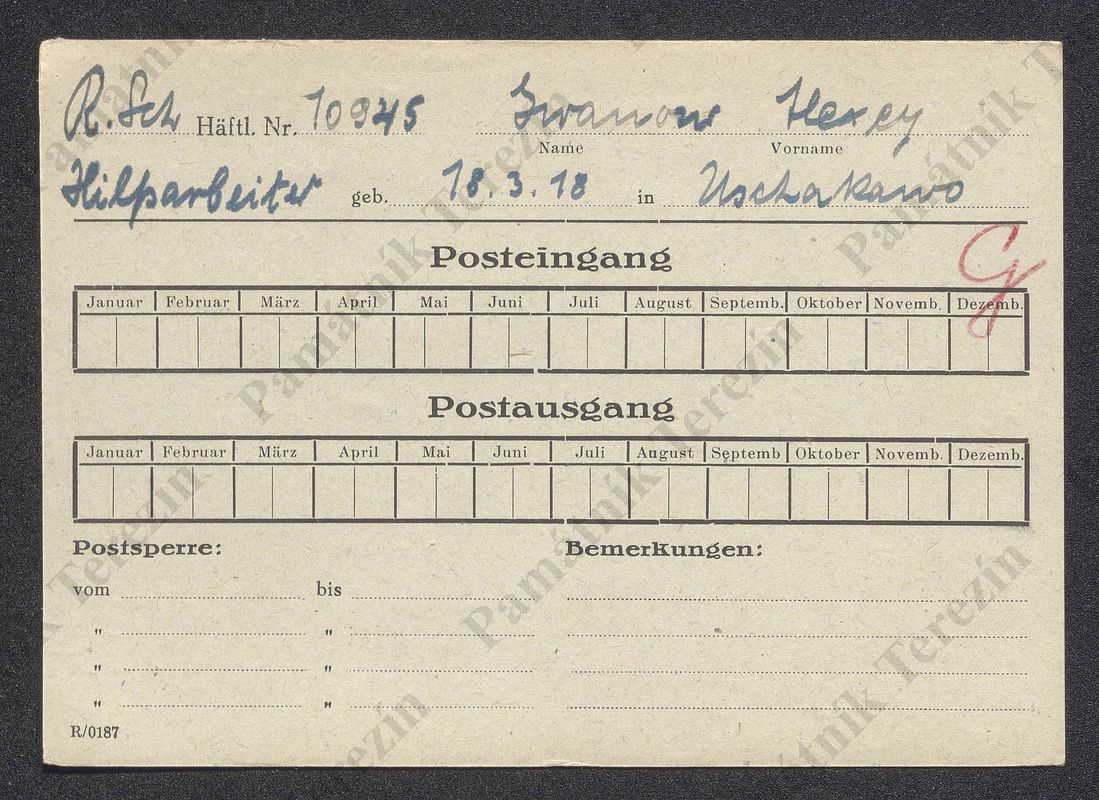 R. Sch Häftl. Nr. 10945 Iwanow Alexey
Name Vorname
Hilfsarbeiter geb. 18.3.18 in Uschakawo
Posteingang
Januar Februar März April Mai Juni Juli August Septemb. Oktober Novemb. Dezemb.
Postausgang
Januar Februar März April Mai Juni Juli August Septemb Oktober Novemb. Dezemb.
Postsperre: Bemerkungen:
vom bis
" "
" "
" "
R/0187
Památník Terezín